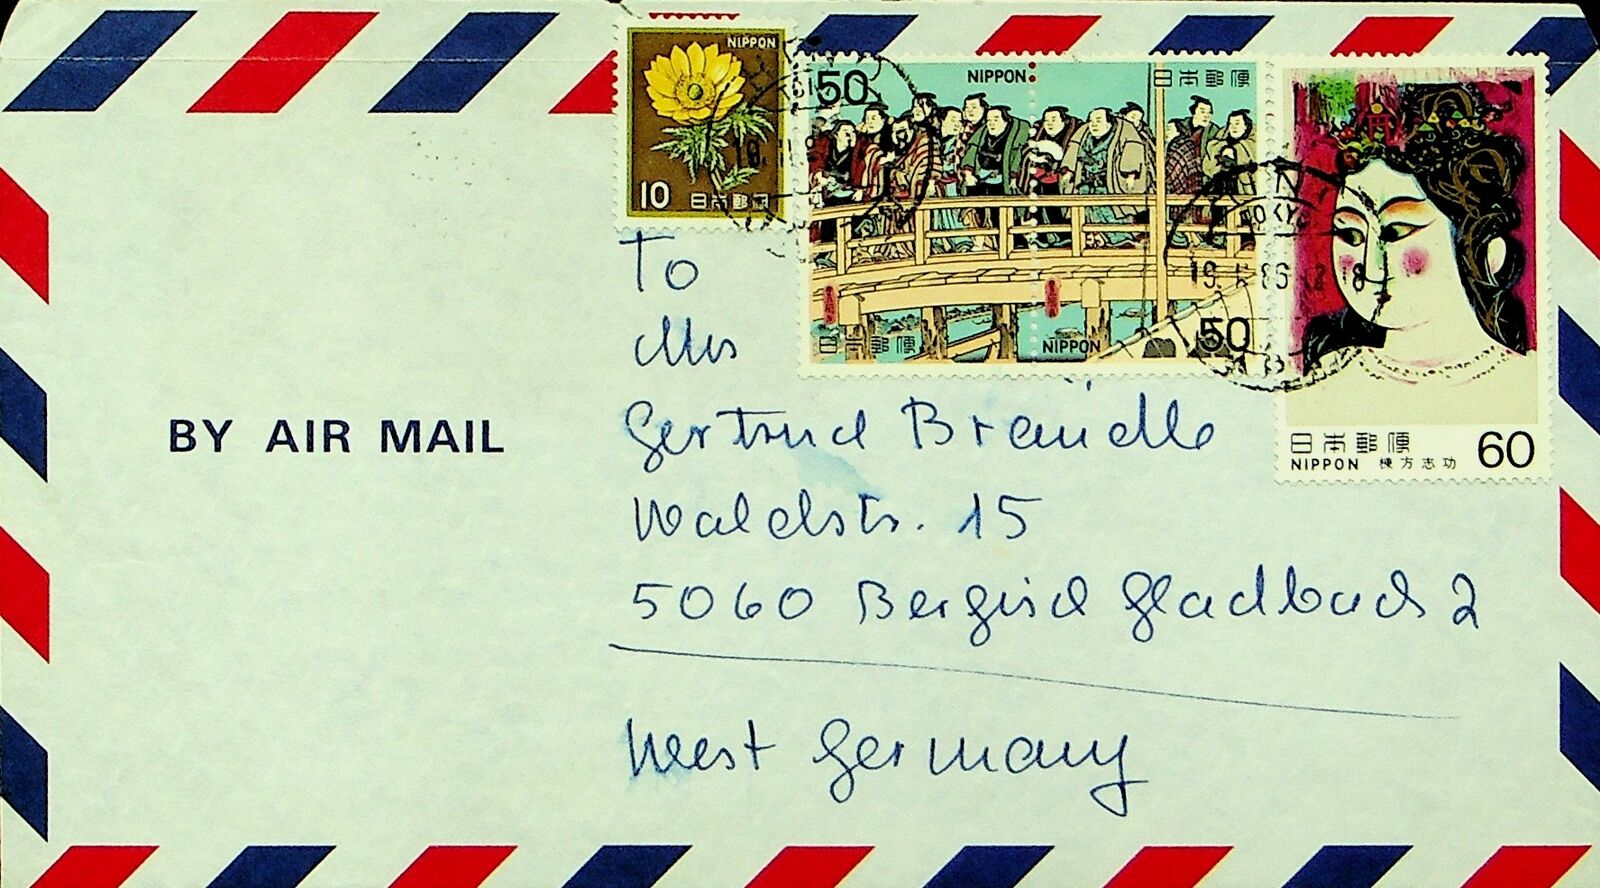 NIPPON
10 日本郵便
50
NIPPON
日本郵便
日本郵便
NIPPON
50
TOKYO
19. 86
日本郵便
NIPPON 棟方志功 60
BY AIR MAIL
To
Mrs
Gertrud
Waldstr. 15
5060 Bergisch Gladbach 2
West Germany